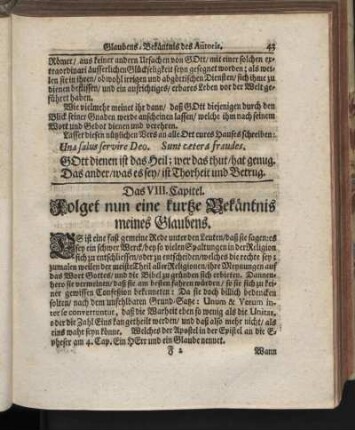 Glaubens-Bekäntnis des Autoris. 43
Römer/ aus keiner andern Ursachen von GOtt/ mit einer solchen ex-
traordinari äusserlichen Glückseligkeit seyn gesegnet worden; als wei-
len sie in ihren/ obwohl irrigen und abgöttischen Diensten/ sich ihme zu
dienen beflissen/ und ein aufrichtiges/ erbares Leben vor der Welt ge-
führet haben.
Wie vielmehr meinet ihr dann/ daß GOtt diejenigen durch den
Blick seiner Gnaden werde anscheinen lassen/ welche ihm nach seinem
Wort und Gebot dienen und verehren.
Lasset diesen nützlichen Vers an alle Ort eures Hauses schreiben:
Una salus servire Deo. Sunt cætera fraudes.
GOtt dienen ist das Heil; wer das thut/ hat genug.
Das ander/ was es sey/ ist Thorheit und Betrug.
Das VIII. Capitel.
Folget nun eine kurtze Bekäntnis
meines Glaubens.
ES ist eine fast gemeine Rede unter den Leuten/ daß sie sagen: es
sey ein schwer Werck/ bey so vielen Spaltungen in der Religion
sich zu entschliessen/ oder zu entscheiden/ welches die rechte sey;
zumalen weilen der meiste Theil aller Religionen/ ihre Meynungen auf
das Wort Gottes/ und die Bibel zu gründen sich erbieten. Dannen-
hero sie vermeinen/ daß sie am besten fahren würden/ so sie sich zu kei-
ner gewissen Confession bekennten: Da sie doch billich bedencken
solten/ nach dem unfehlbaren Grund-Satz: Unum & Verum in-
vicem convertuntur, daß die Warheit eben so wenig als die Unitas,
oder die Zahl Eins kan getheilt werden/ und daß also mehr nicht/ als
eins wahr seyn könne. Welches der Apostel in der Epistel an die E-
pheser am 4. Cap. Ein HErr und ein Glaube nennet.
F 2 Wann